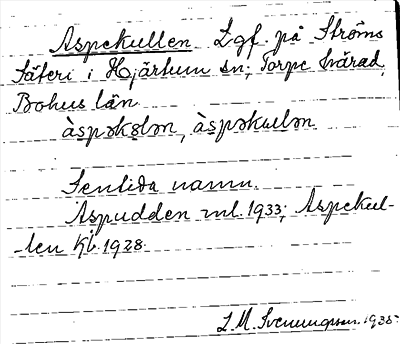 Aspekullen Lgf. på Ströms
Säteri i Hjärtum sn; Torpe härad,
Bohus län
àspəkɞlən, àspəkulən
Sentida namn.
Aspudden ml. 1933; Aspekul-
-len Kb. 1928.
L. M. Svenungsson. 1935.